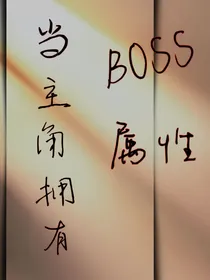 当主角拥有
BOSS
属性